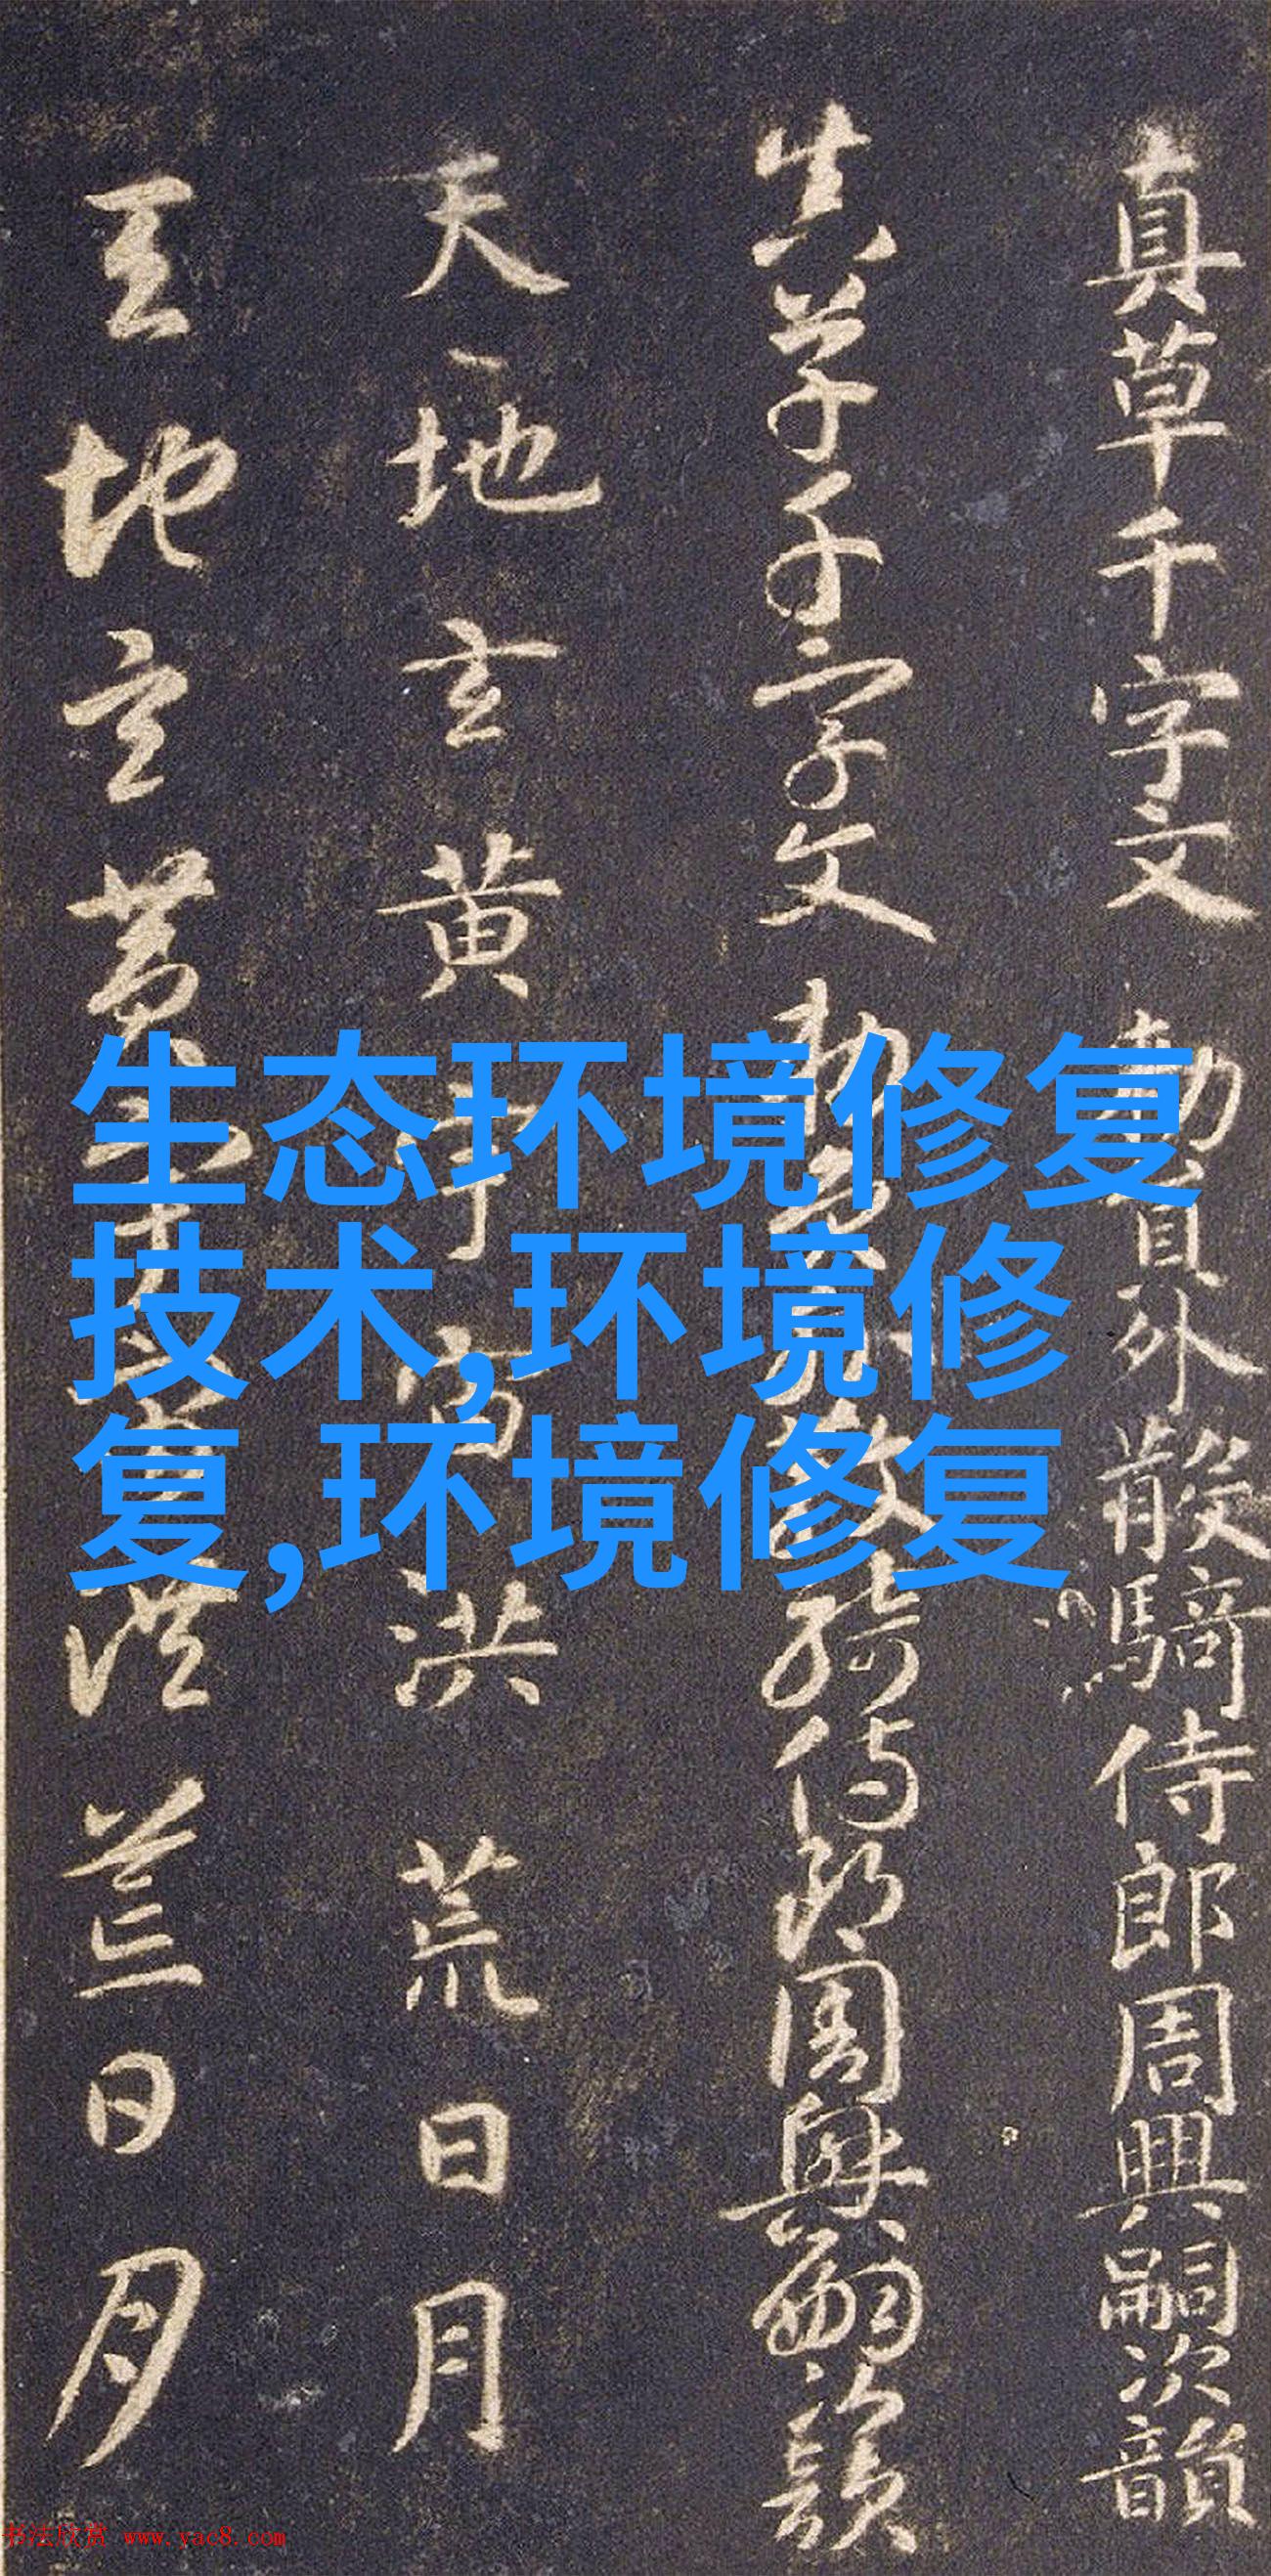 真草千字文 勅員外散騎侍郎周興嗣次韻
真草千字文 勅員外散騎侍郎周興嗣次韻
天地玄黄宇宙洪荒日月
天地玄黄宇宙洪荒日月
生态环境修复
技术,环境修
复,环境修复
书法欣赏 www.yac8.com